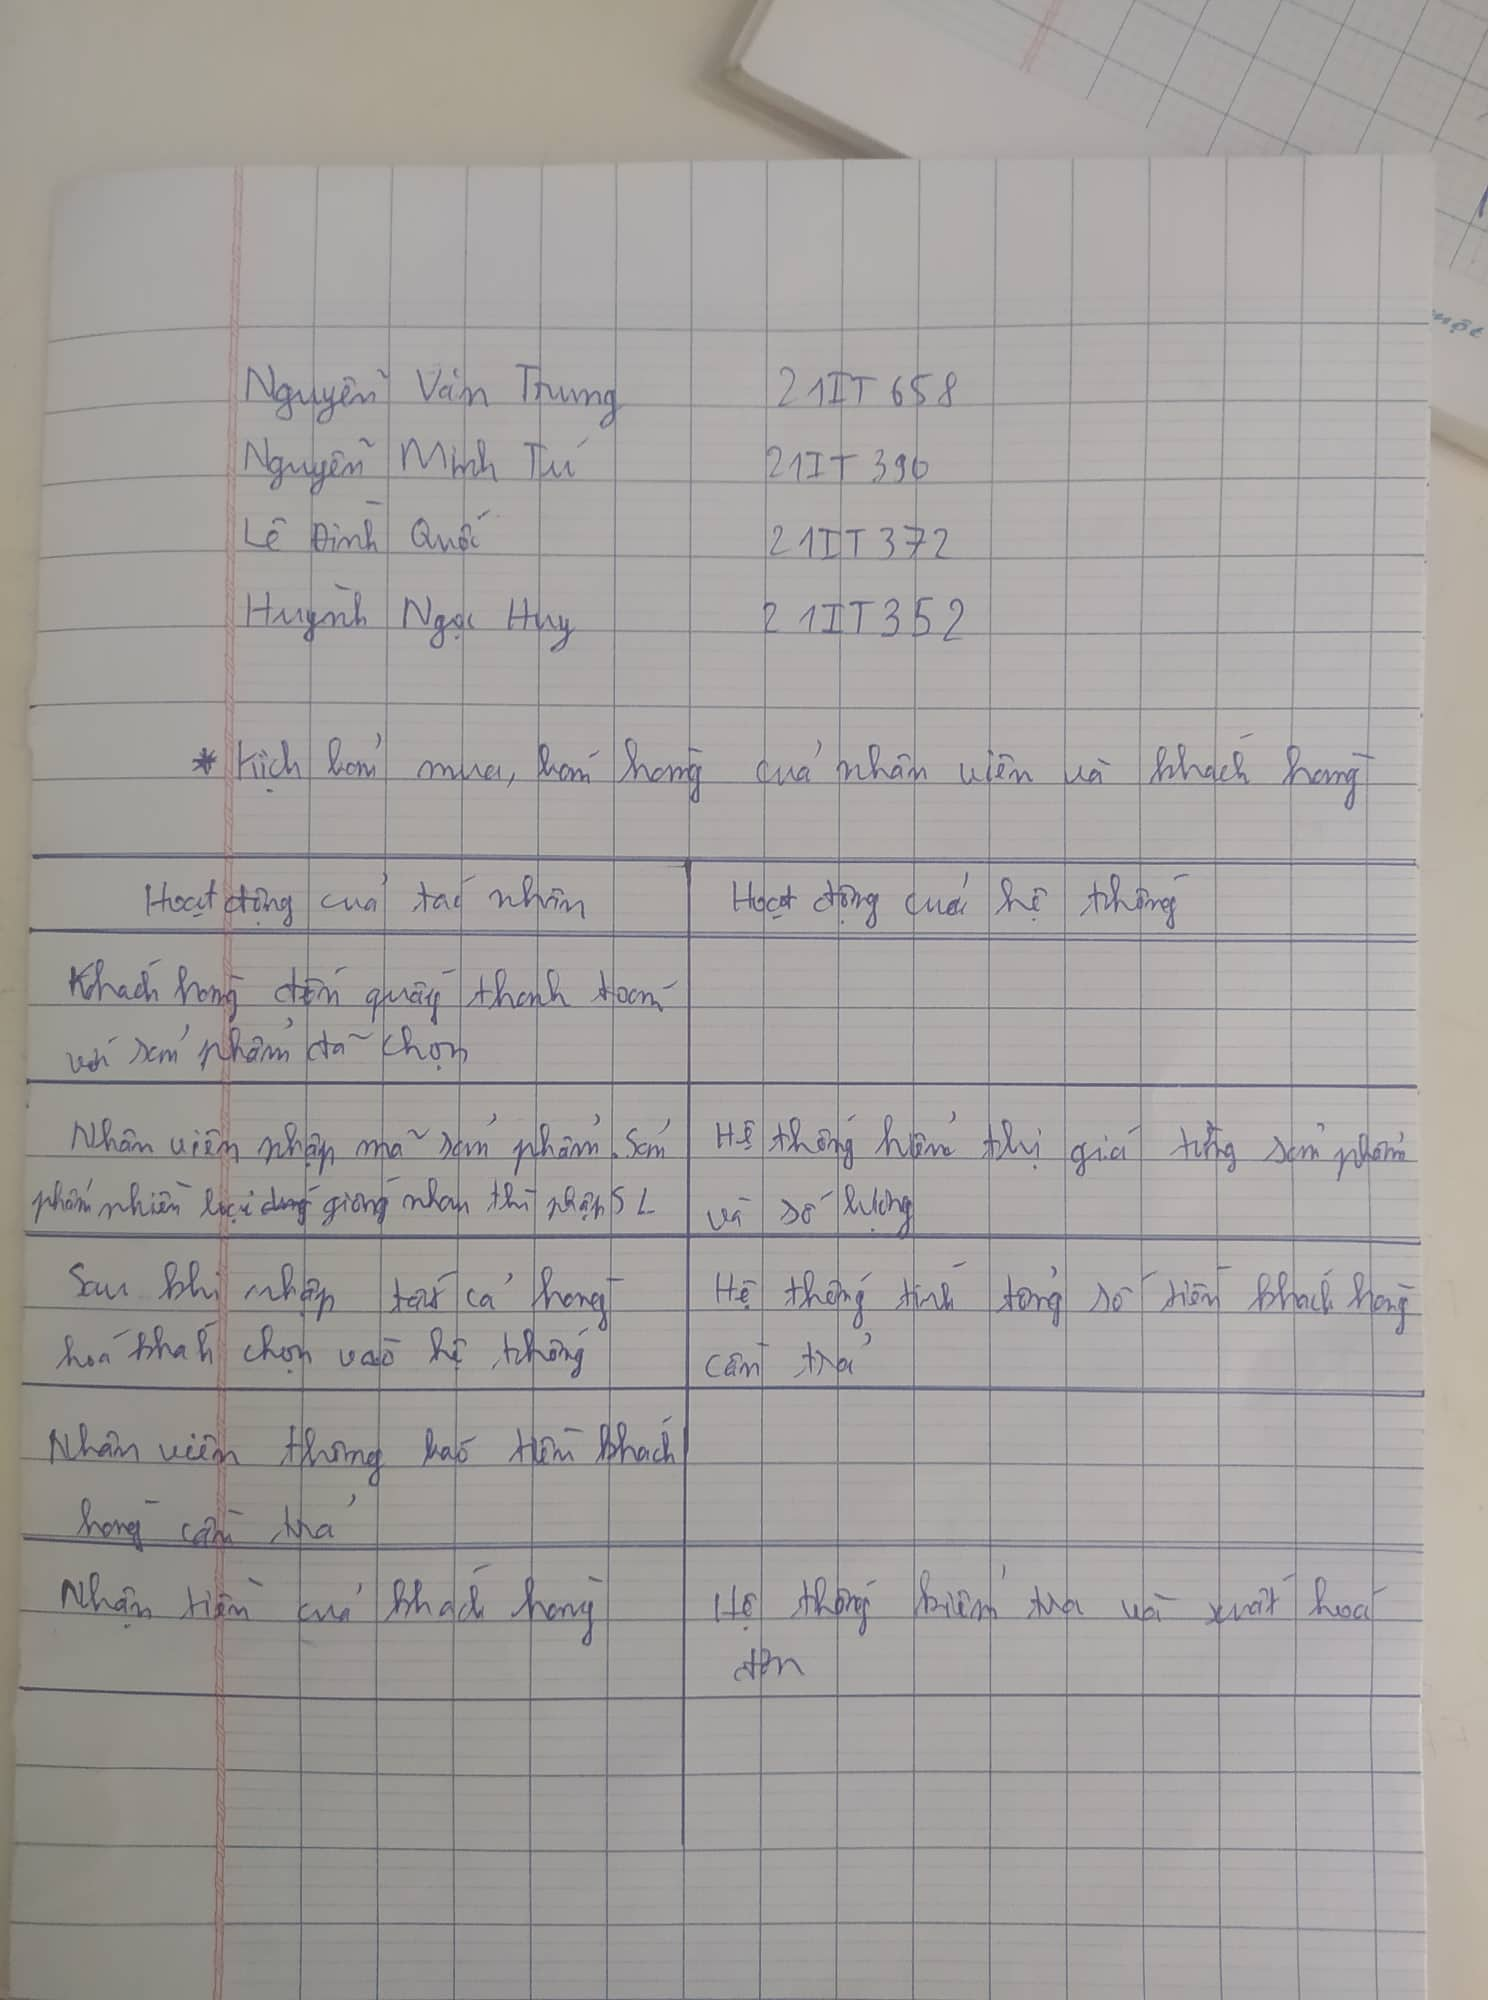 một
Nguyễn Văn Trung 21IT658
Nguyễn Minh Tú 21IT390
Lê Đình Quốc 21IT372
Huỳnh Ngọc Huy 21IT352
* Kịch bản mua, bán hàng của nhân viên và khách hàng
Hoạt động của tác nhân
Hoạt động của hệ thống
Khách hàng đến quầy thanh toán
với sản phẩm đã chọn
Nhân viên nhập mã sản phẩm. Sản
phẩm nhiều loại giống nhau thì nhập SL
Hệ thống hiển thị giá từng sản phẩm
và số lượng
Sau khi nhập tất cả hàng
hoá khách chọn vào hệ thống
Hệ thống tính tổng số tiền khách hàng
cần trả
Nhân viên thông báo tiền khách
hàng cần trả
Nhận tiền của khách hàng
Hệ thống kiểm tra và xuất hoá
đơn